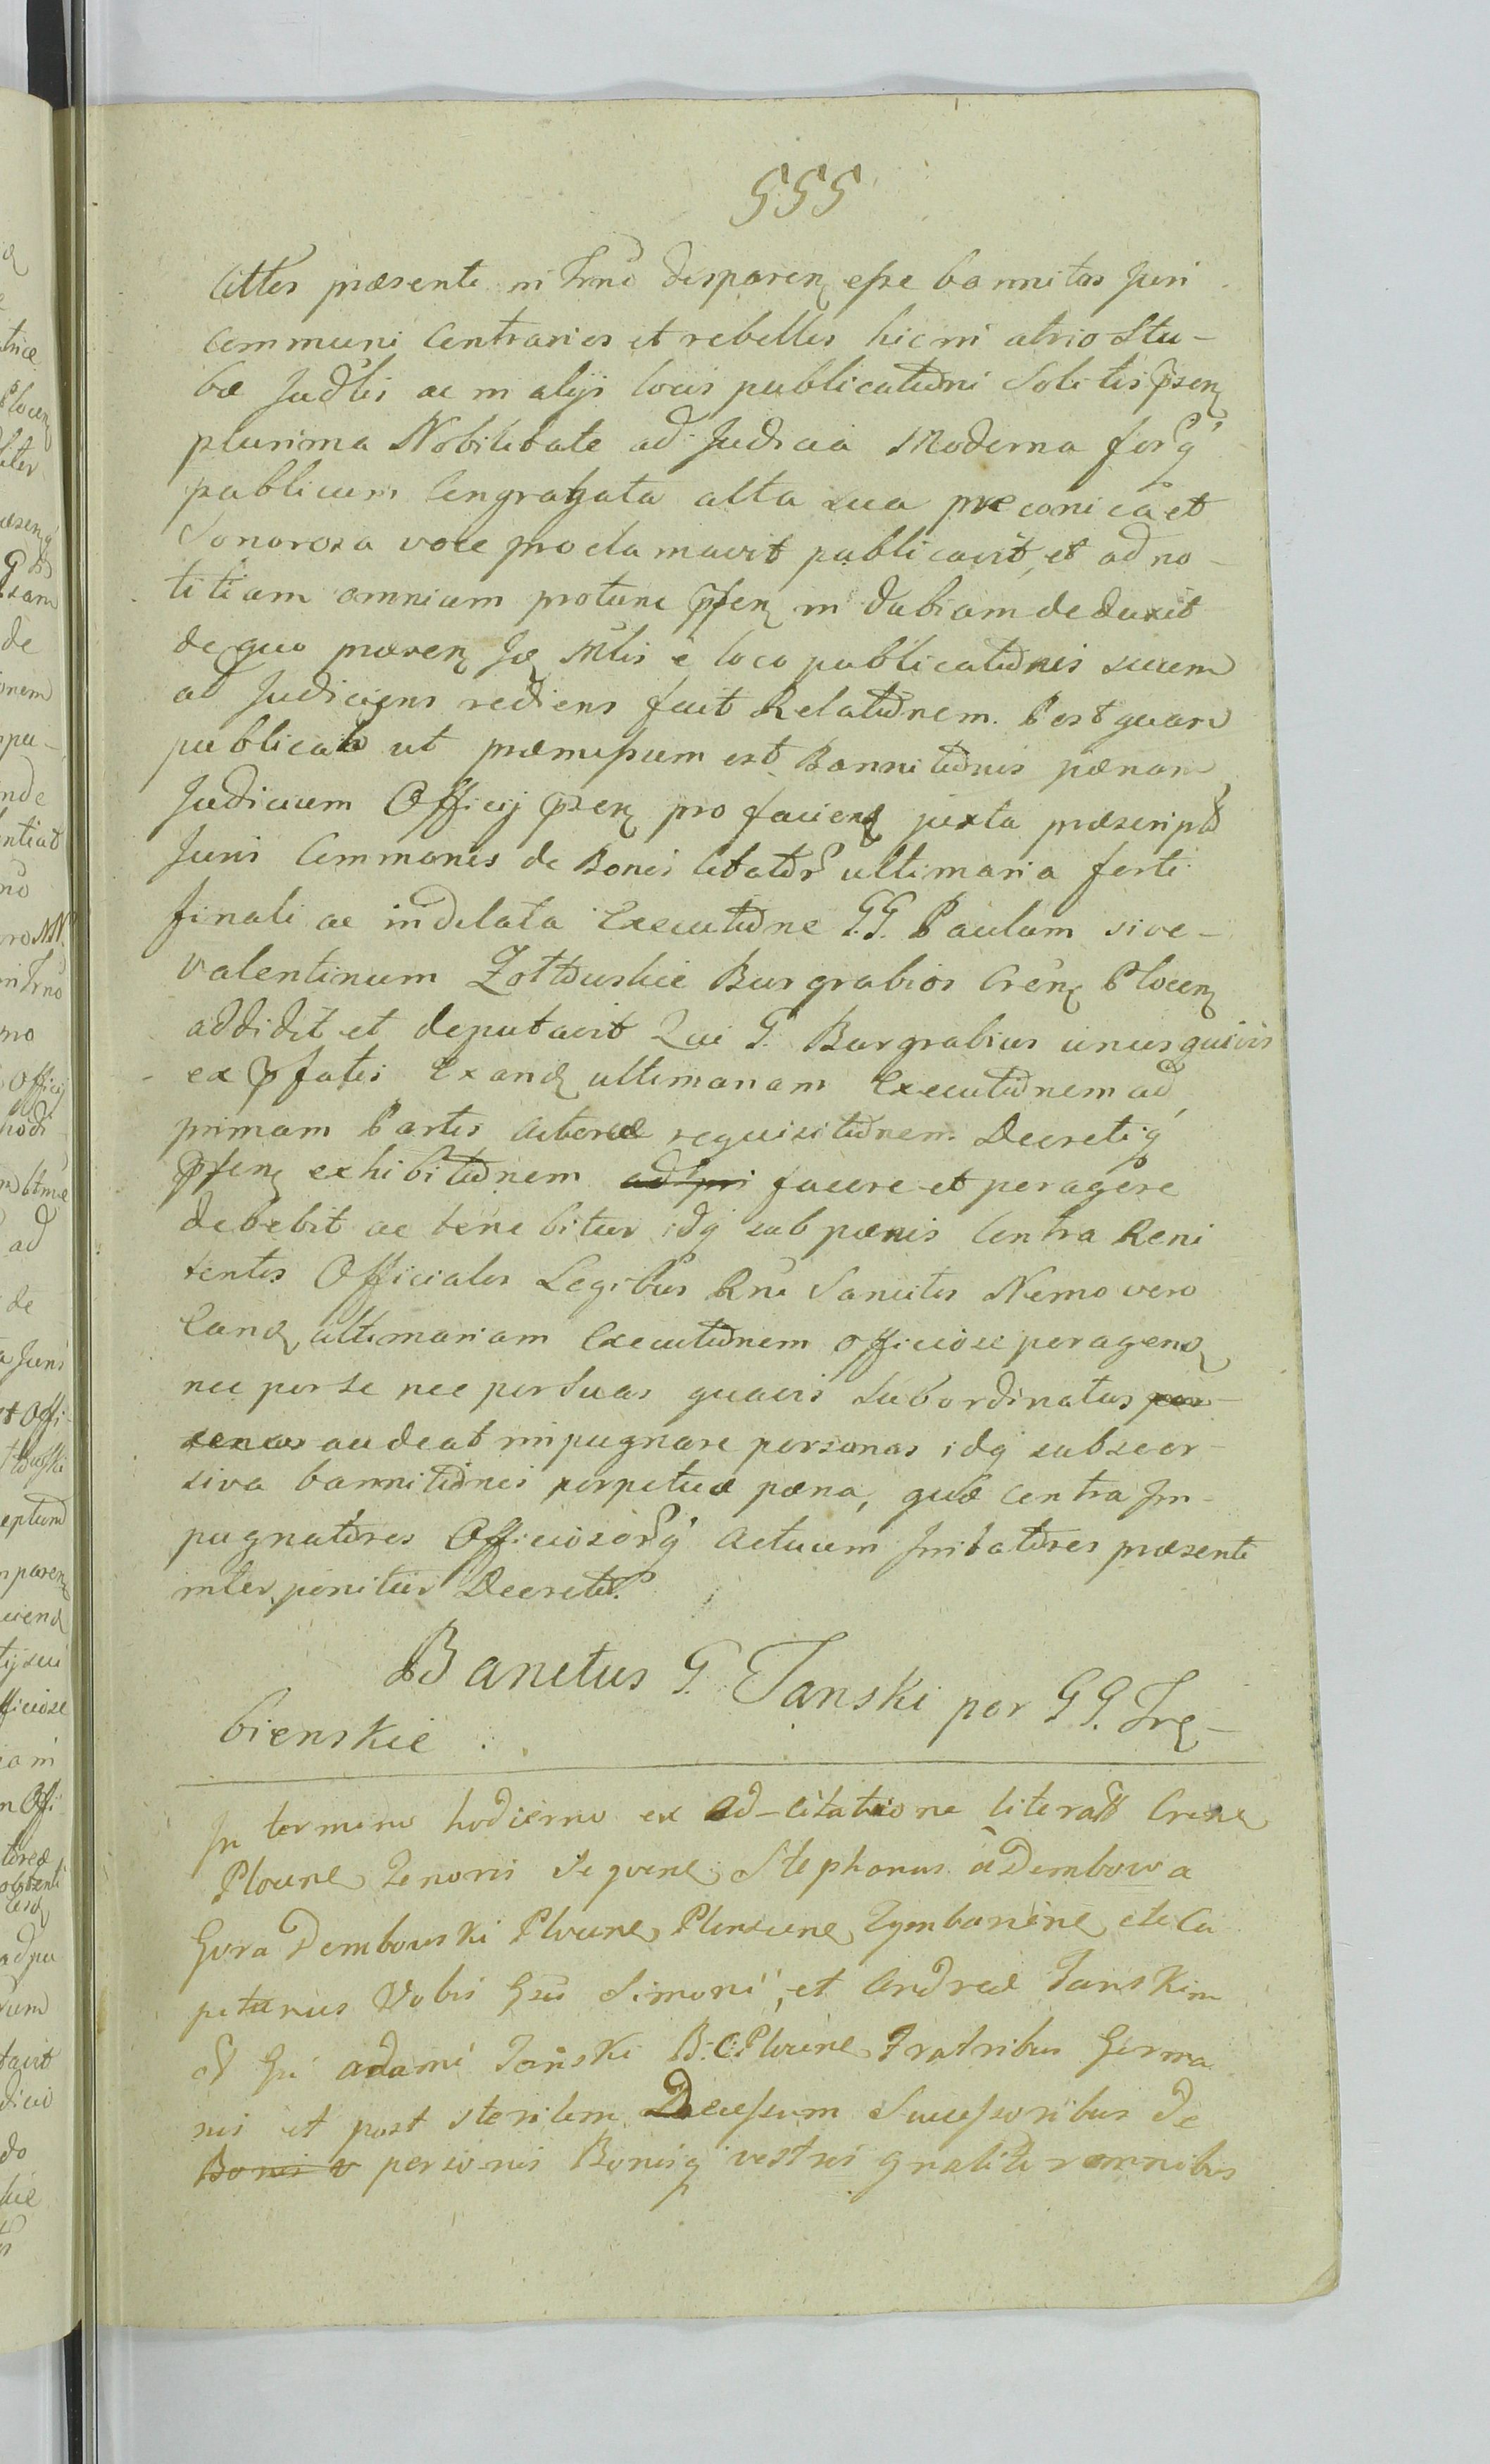 555
Citttos præsenti in Trno disparen esse bannitos Juri
communi Contrarios et rebelles hic in atrio Stu-
bæ Judlis ac in alijs locis publicationi Solitis psen
plurima Nobilitate ad Judicia Moderna forq
publicum Congregata alta sua præconica et
Sonorosa voce proclamavit publicavit, et ad no-
titiam omnium protunc psen in dubiam deduxit
de quo præsen Jdę Mlis è loco publicationis suum
ad Judiciens rediens fecit Relationem. Postquam
publicata ut præmissum est Bannitionis pænam
Judicium Officij psen pro facienda juxta præscript
Juris Communis de Bonis Citator ultimaria forti
finali ac indilata Executione G.G. Paulum sive-
Valentinum Zottowskie Burgrabios Crén Plocen
addidit et deputavit Qui G. Burgrabius unusquivis
ex pfatis Eand ultimariam Executionem ad
primam Partis Actoreæ requisitionem Decretiq
psen exhibitionem ad pri facere et peragere
debebit ac tenebitur idq sub pænis Contra Reni
tentes Officiales Legibus Rni Sancitis Nemo vero
Eand ultimariam Executionem officiose peragend
nec per se nec per suas quavis Subordinatas per-
sonas audeat impugnare personas idq sub seor-
siva bannitionis perpetuæ pæna, quæ contra Im-
pugnatores Officiosorq Actuum Invitatores præsenti
interponitur Decreto.
Banitus G. Tanski per GG. Trę-
bienskie
In termino hodierno ex Ad-citatione literali Crene
Plocene Tenoris Sequene Stephanus à Dembowa
Gora Dembowski Plocene, Plonscene Zymbariene etc Ca
pitanus Vobis Gsis Simoni, et Andreæ Tanskim
et Gsi Adami Tański B: C: Plocene Fratribus Germa
nis et post sterilem Decessum Successoribus De
Bonis v personis Bonisq vestris gnaliter omnibus